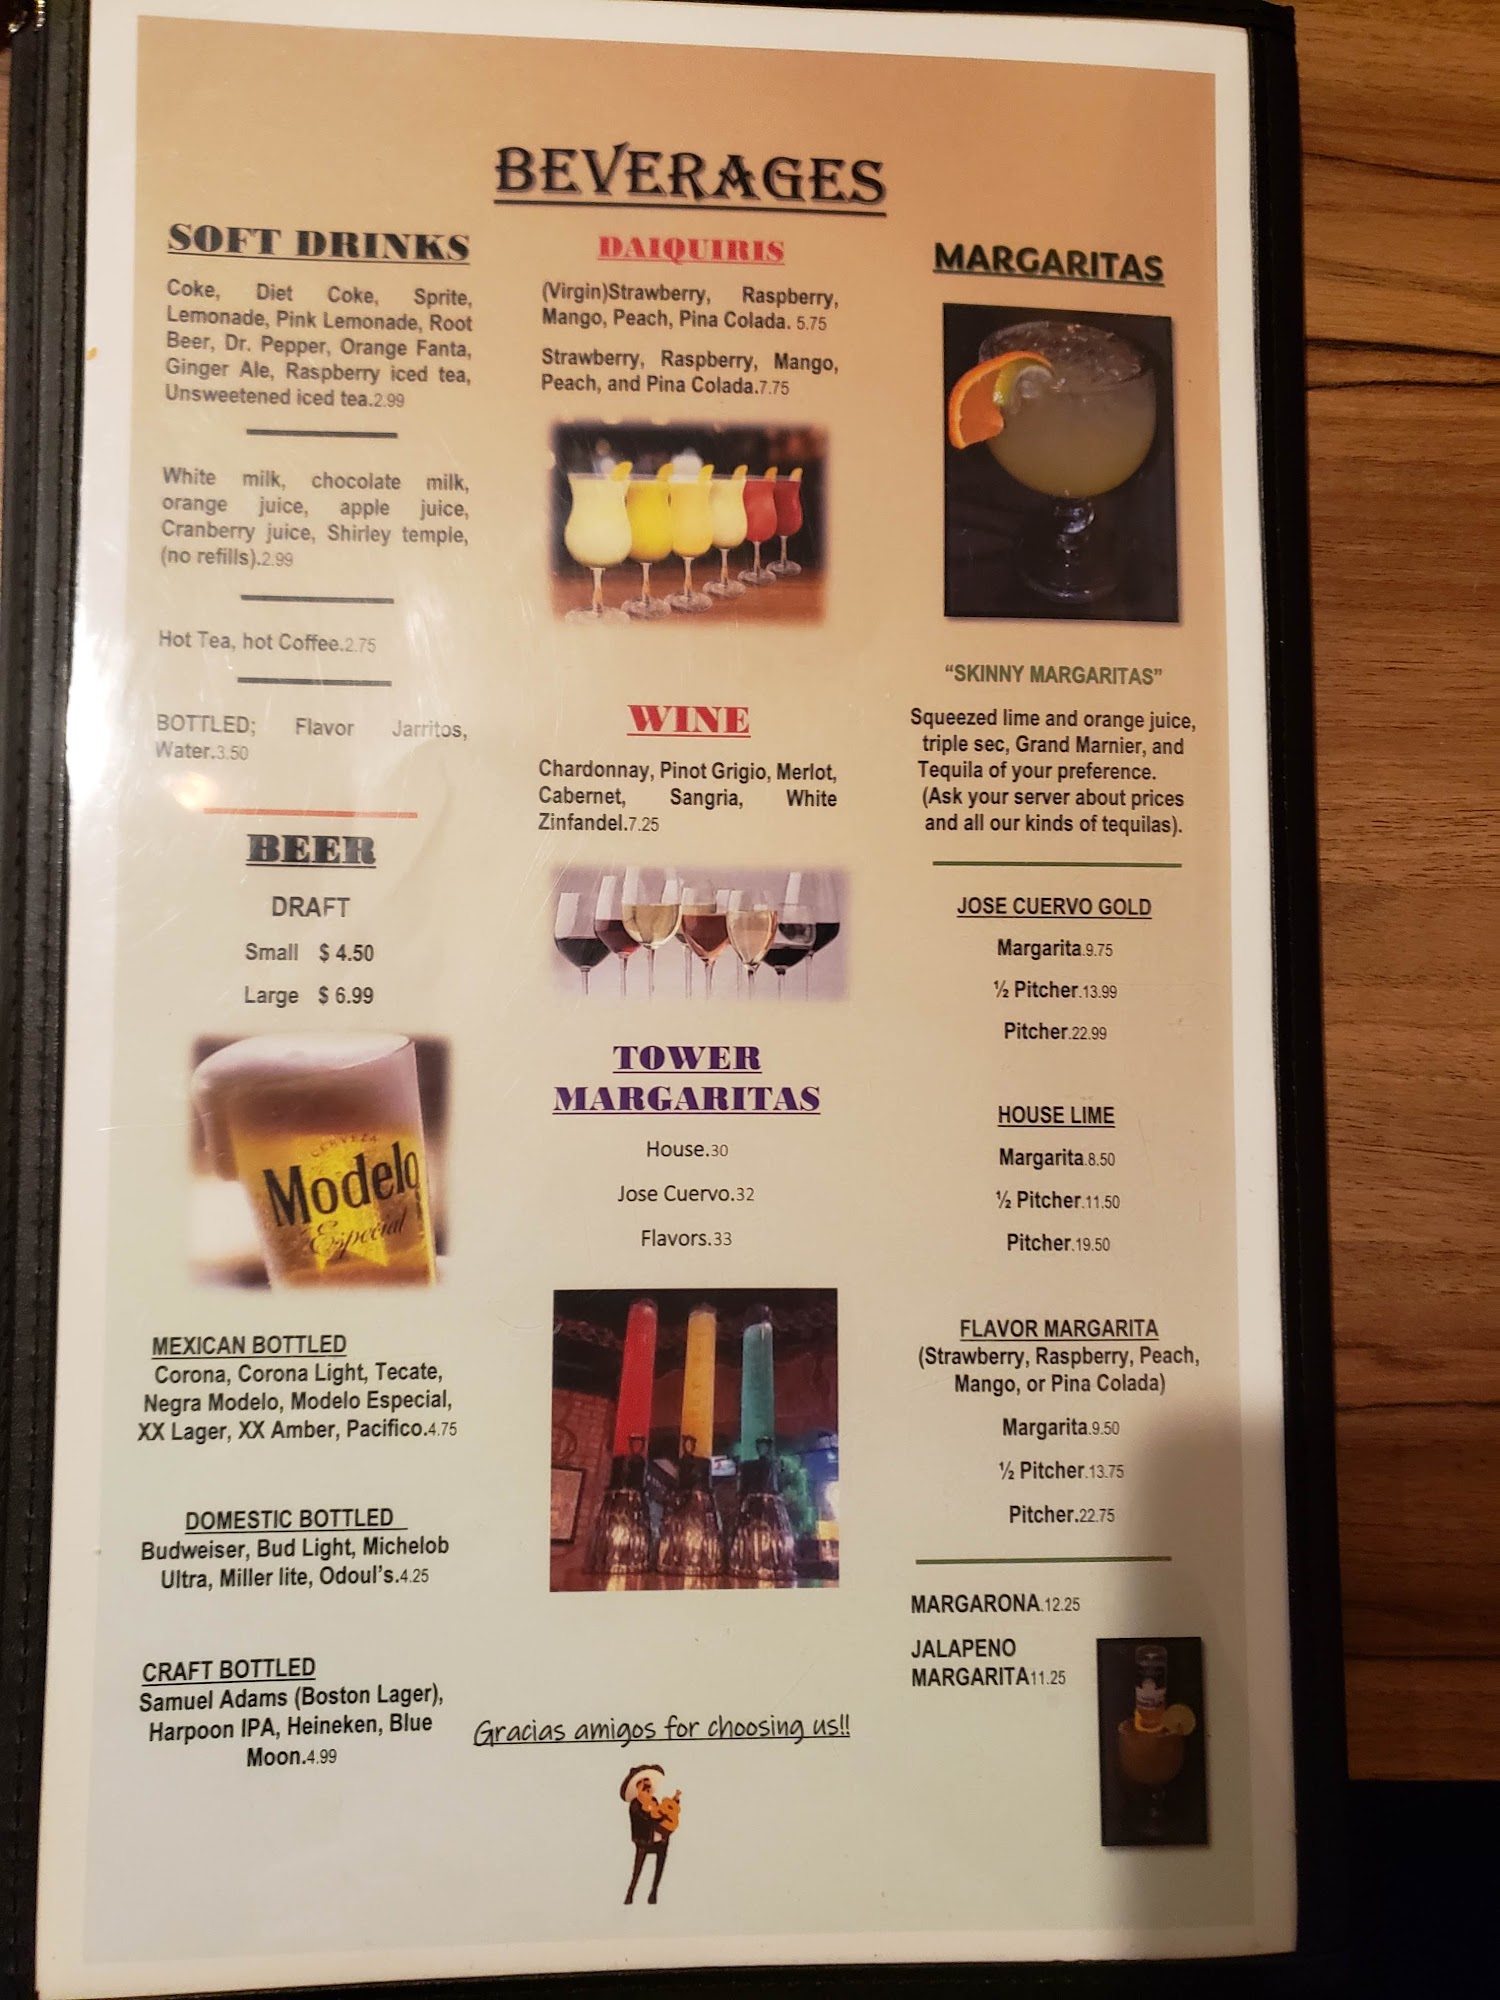 BEVERAGES
SOFT DRINKS
Coke, Diet Coke, Sprite,
Lemonade, Pink Lemonade, Root
Beer, Dr. Pepper, Orange Fanta,
Ginger Ale, Raspberry iced tea,
Unsweetened iced tea.2.99
White milk, chocolate milk,
orange juice, apple juice,
Cranberry juice, Shirley temple,
(no refills).2.99
Hot Tea, hot Coffee.2.75
BOTTLED; Flavor Jarritos,
Water.3.50
BEER
DRAFT
Small $ 4.50
Large $ 6.99
CERVEZA
Modelo
Especial
MEXICAN BOTTLED
Corona, Corona Light, Tecate,
Negra Modelo, Modelo Especial,
XX Lager, XX Amber, Pacifico.4.75
DOMESTIC BOTTLED
Budweiser, Bud Light, Michelob
Ultra, Miller lite, Odoul's.4.25
CRAFT BOTTLED
Samuel Adams (Boston Lager),
Harpoon IPA, Heineken, Blue
Moon.4.99
DAIQUIRIS
(Virgin)Strawberry, Raspberry,
Mango, Peach, Pina Colada. 5.75
Strawberry, Raspberry, Mango,
Peach, and Pina Colada.7.75
WINE
Chardonnay, Pinot Grigio, Merlot,
Cabernet, Sangria, White
Zinfandel.7.25
TOWER
MARGARITAS
House.30
Jose Cuervo.32
Flavors.33
Gracias amigos for choosing us!!
MARGARITAS
“SKINNY MARGARITAS”
Squeezed lime and orange juice,
triple sec, Grand Marnier, and
Tequila of your preference.
(Ask your server about prices
and all our kinds of tequilas).
JOSE CUERVO GOLD
Margarita.9.75
½ Pitcher.13.99
Pitcher.22.99
HOUSE LIME
Margarita.8.50
½ Pitcher.11.50
Pitcher.19.50
FLAVOR MARGARITA
(Strawberry, Raspberry, Peach,
Mango, or Pina Colada)
Margarita.9.50
½ Pitcher.13.75
Pitcher.22.75
MARGARONA.12.25
JALAPENO
MARGARITA11.25